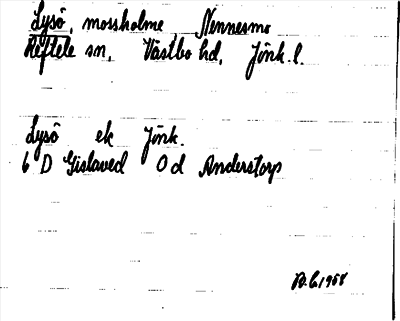 Lysö, mossholme Nennesmo
Reftele sn, Västbo hd, Jönk. l.
Lysö ek Jönk.
6 D Gislaved 0 d Anderstorp
1958